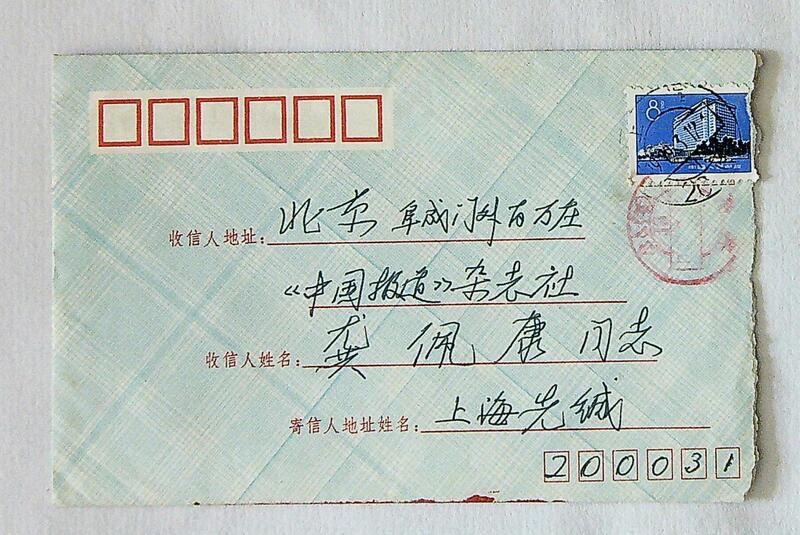 8
收信人地址: 北京 阜成门外百万庄
《中国报道》杂志社
收信人姓名: 龚佩康 同志
寄信人地址姓名: 上海
200031